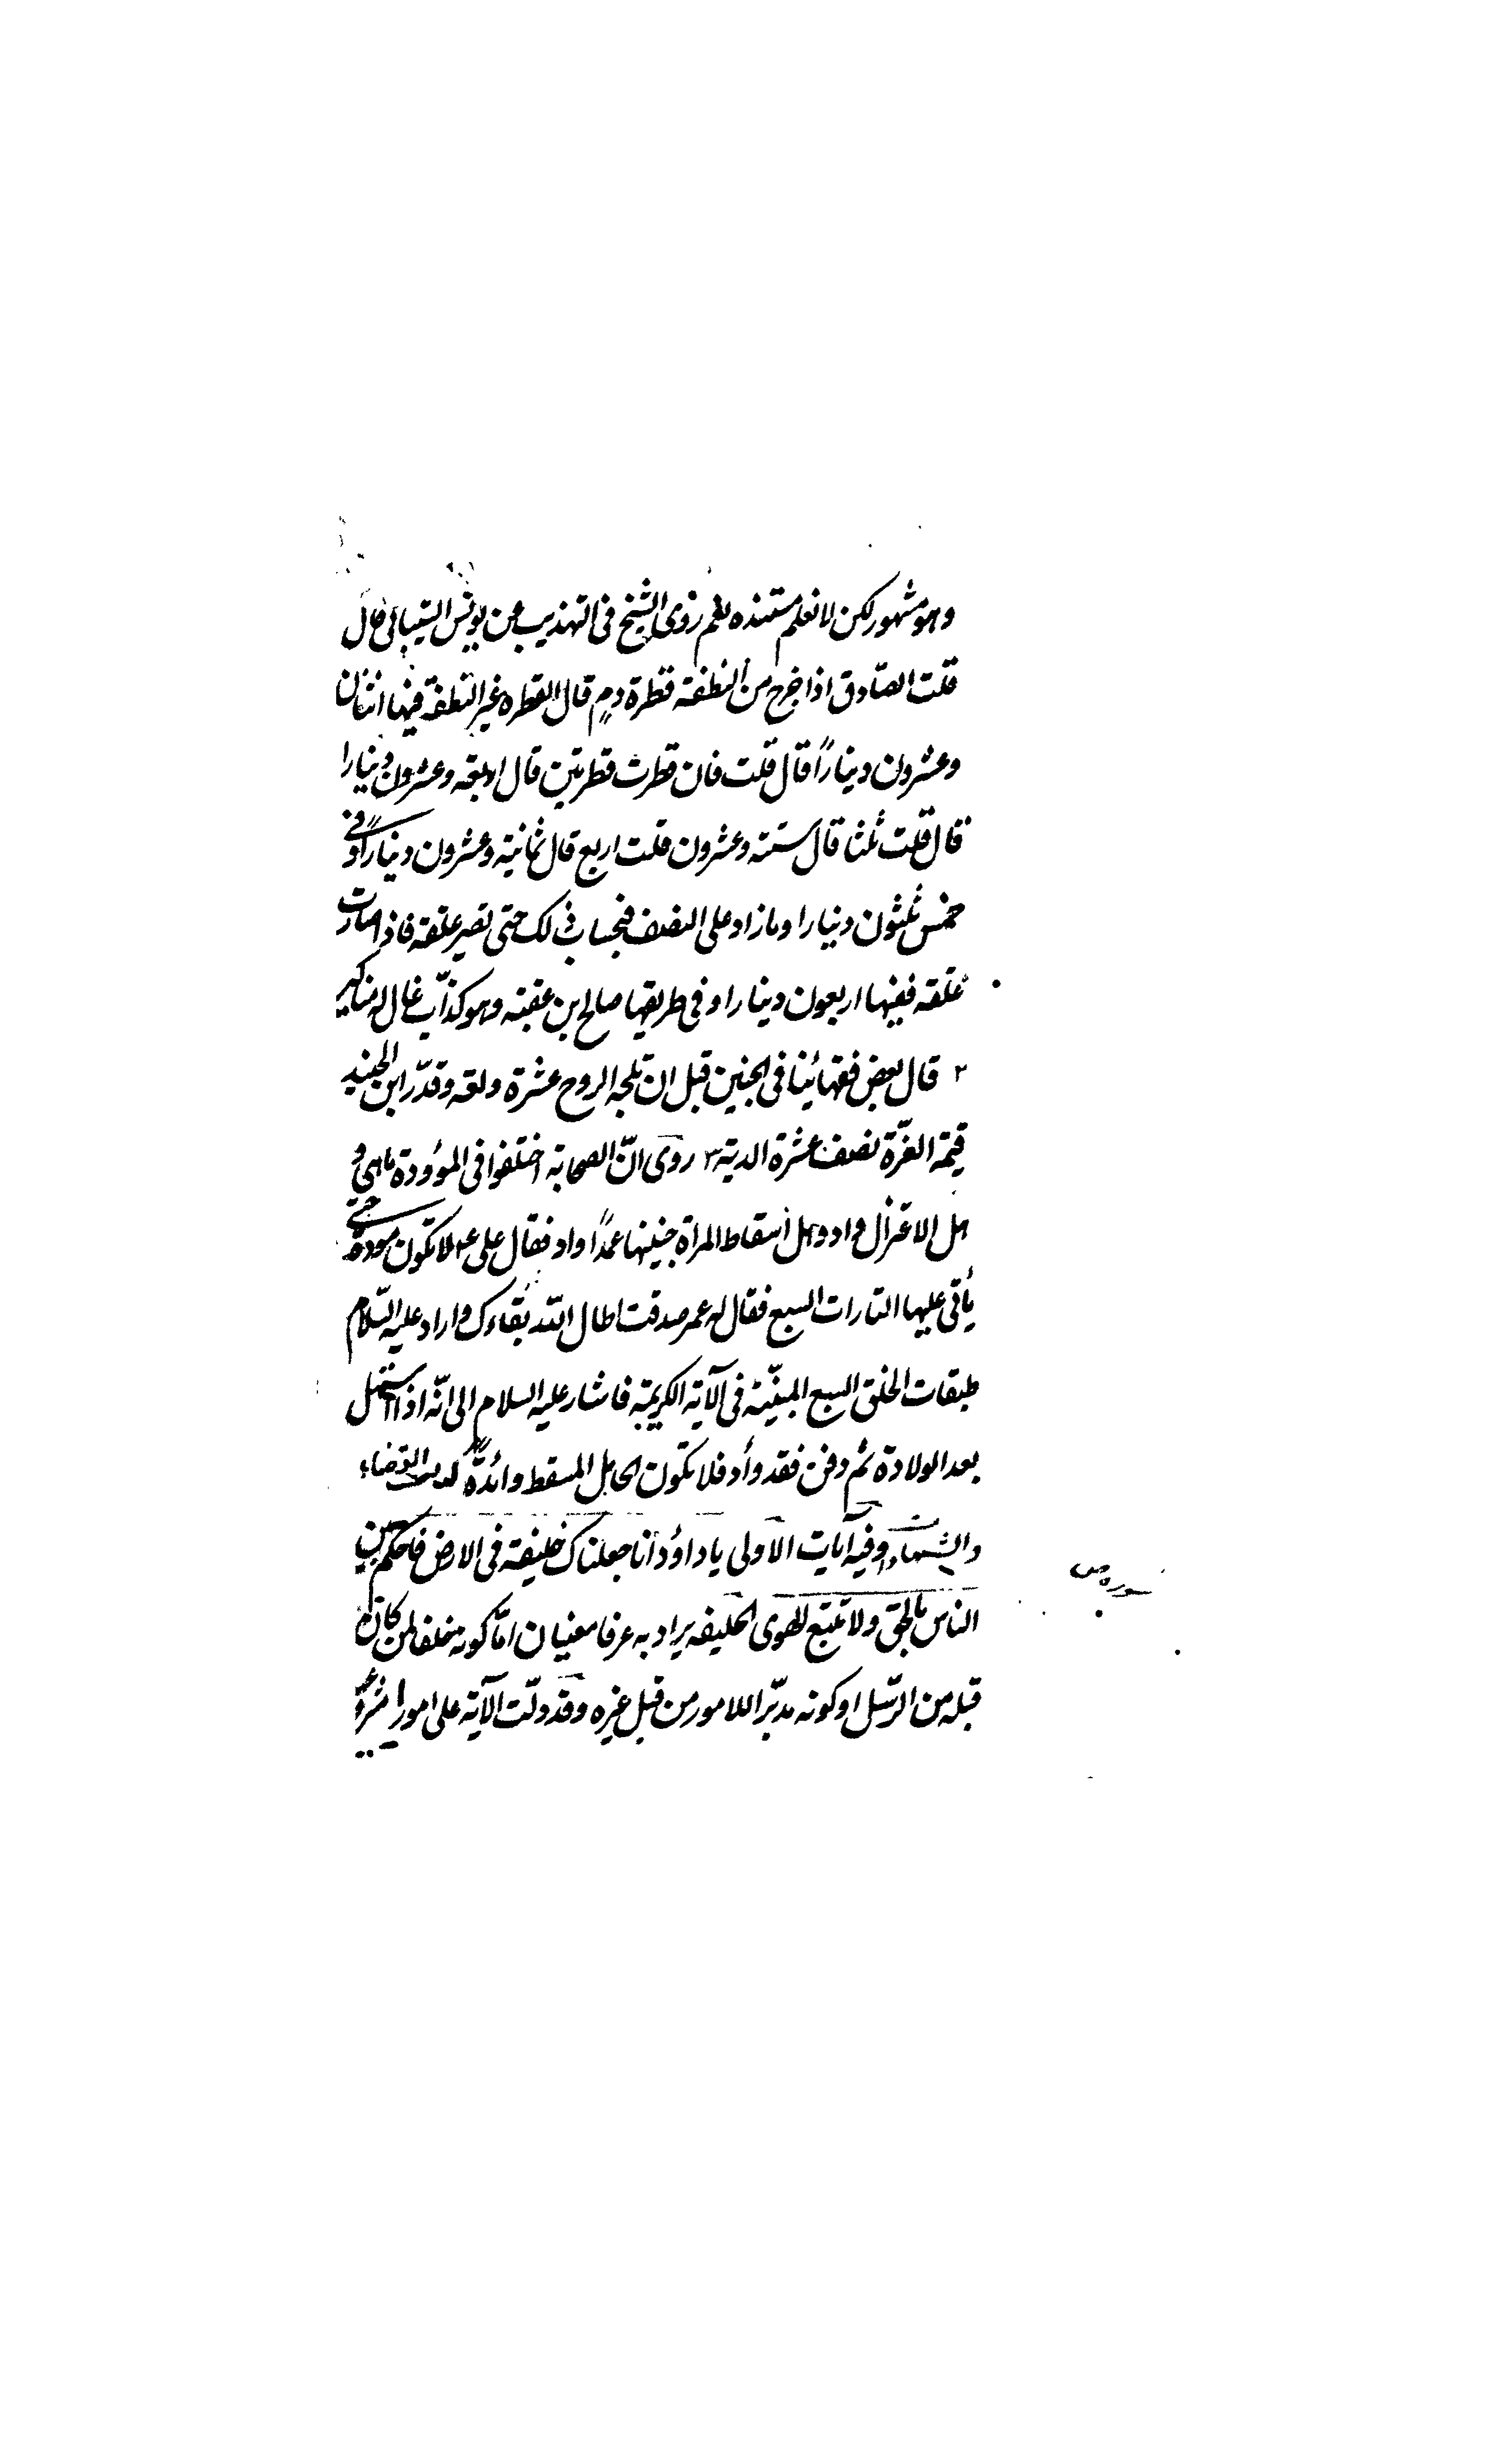 وهو مشهور لكن لا نعلم مستنده نعم روى الشيخ فى التهذيب عن يونس الشيبانى قال
قلت الصّادق اذا خرج من النطفة قطرة دمٍ قال القطره غير النطفة فيها اثنان
وعشرون ديناراً قال قلت فان قطرت قطرتين قال اربعة وعشرون دينارا
قال قلت ثلثا قال ستة وعشرون قلت اربع قال ثمانية وعشرون ديناراً وفى
خمس ثلثون دينارا وما زاد على النصف فبحساب ذلك حتى تصير علقة فاذا صارت
علقه ففيها اربعون دينارا وفى طريقها صالح بن عقبة وهو كذّاب غال له مناكير
٢ قال بعض فقهائنا فى الجنين قبل ان تلجه الروح عشرة ولعه وقدّر ابن الجنيد
قيمة الغرّة نصف عشرة الدية ٣ روى انّ الصحابة اختلفوا فى الموؤدة ماهى و
هل الاعتزال واد وهل اسقاط المراة جنينها عمداً واد فقال على ع لا تكون موؤدة حتى
يأتى عليها التارات السبع فقال له عمر صدقت اطال الله بقاءك واراد عليه السّلام
طبقات الخلق السبع المبيّنة فى الآية الكريمة فاشار عليه السلام الى انّه اذا استهل
بعد الولادة ثم دفن فقد وأد فلا تكون الحامل المسقط وائدةً كتاب القضاء
والشهادات وفيه آيات الاولى يا داوُد انا جعلناك خليفة فى الارض فاحكم بين
سوره ص
الناس بالحق ولا تتبع الهوى الخليفه يراد به عرفا معنيان امّا كونه خلفا لمن كان
قبله من الرّسل او كونه مدبّرا للامور من قبل غيره وقد دلّت الآية على امور ا